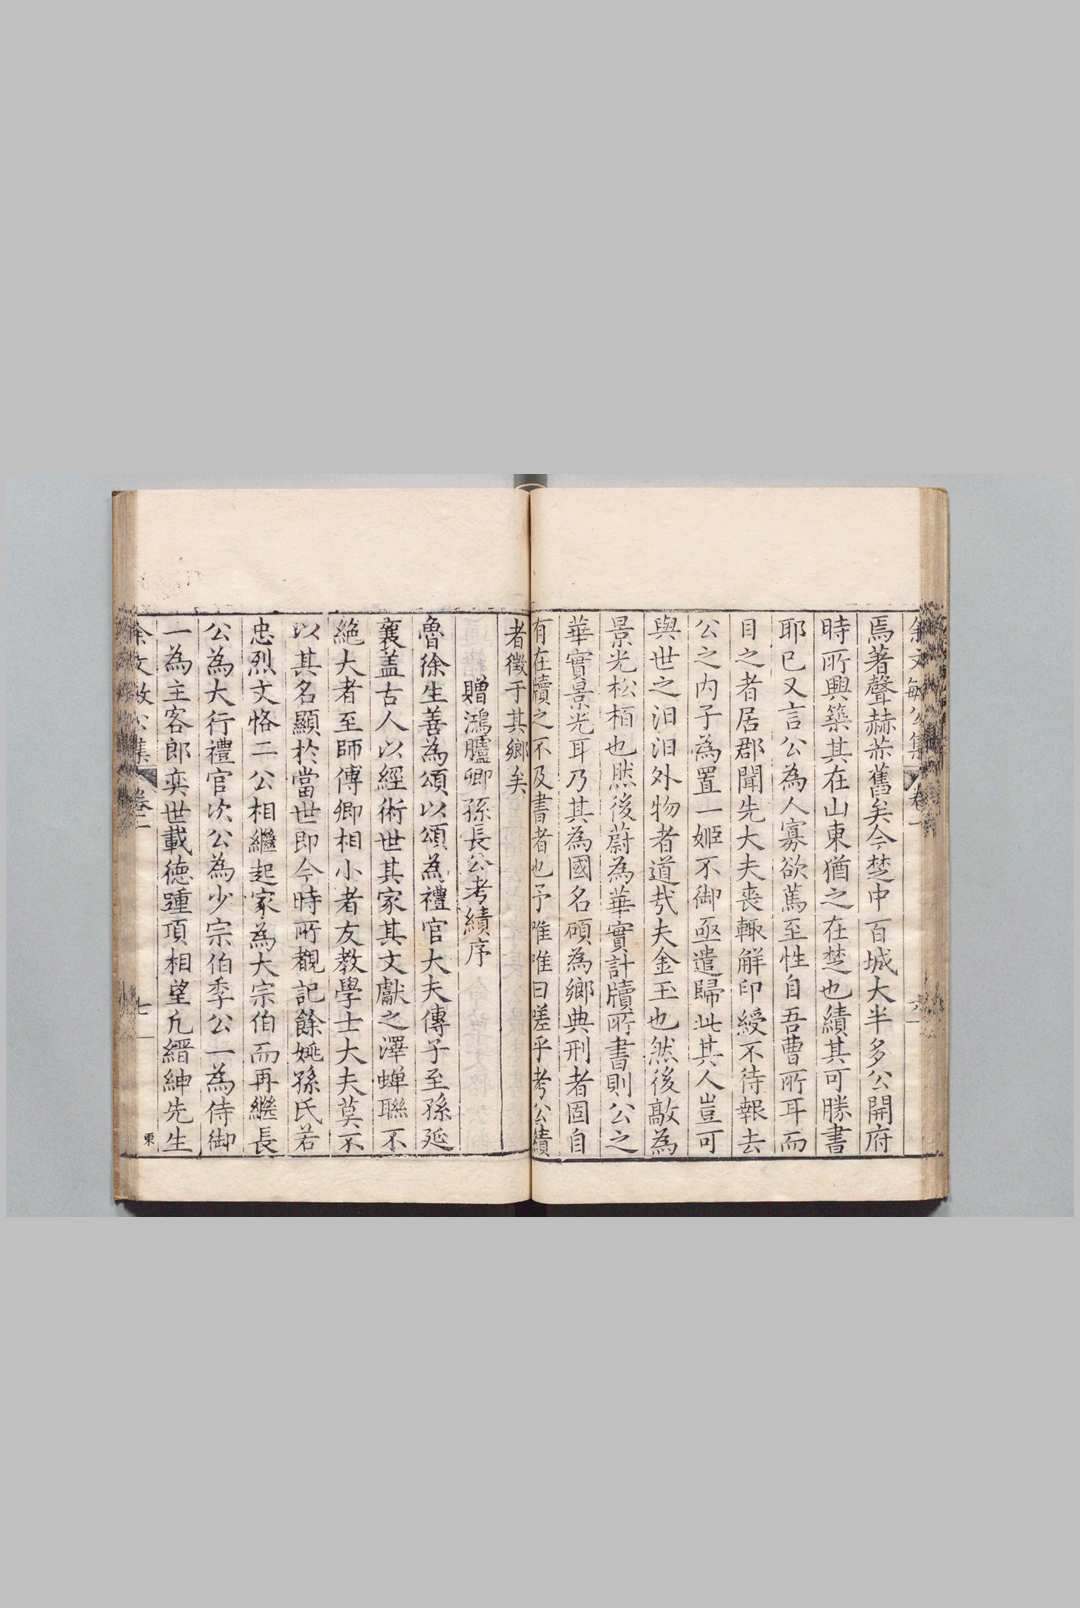 余文敏公集 卷二
焉著聲赫赫舊矣今楚中百城大半多公開府
時所興築其在山東猶之在楚也績其可勝書
耶已又言公為人寡欲篤至性自吾曹所耳而
目之者居郡聞先大夫喪輙解印綬不待報去
公之內子為置一姬不御亟遣歸此其人豈可
與世之汩汩外物者道㢤夫金玉也然後敲為
景光松栢也然後蔚為華實計牘所書則公之
華實景光耳乃其為國名碩為鄉典刑者固自
有在牘之不及書者也予唯唯曰嗟乎考公績
者徵于其鄉矣
贈鴻臚卿孫長公考績序
魯徐生善為頌以頌為禮官大夫傳子至孫延
襄蓋古人以經術世其家其文獻之澤蟬聯不
絕大者至師傅卿相小者友教學士大夫莫不
以其名顯於當世即今時所覩記餘姚孫氏若
忠烈文恪二公相繼起家為大宗伯而再繼長
公為大行禮官次公為少宗伯季公一為侍御
一為主客郎奕世載德踵項相望凢縉紳先生
余文敏公集 卷二 七
東